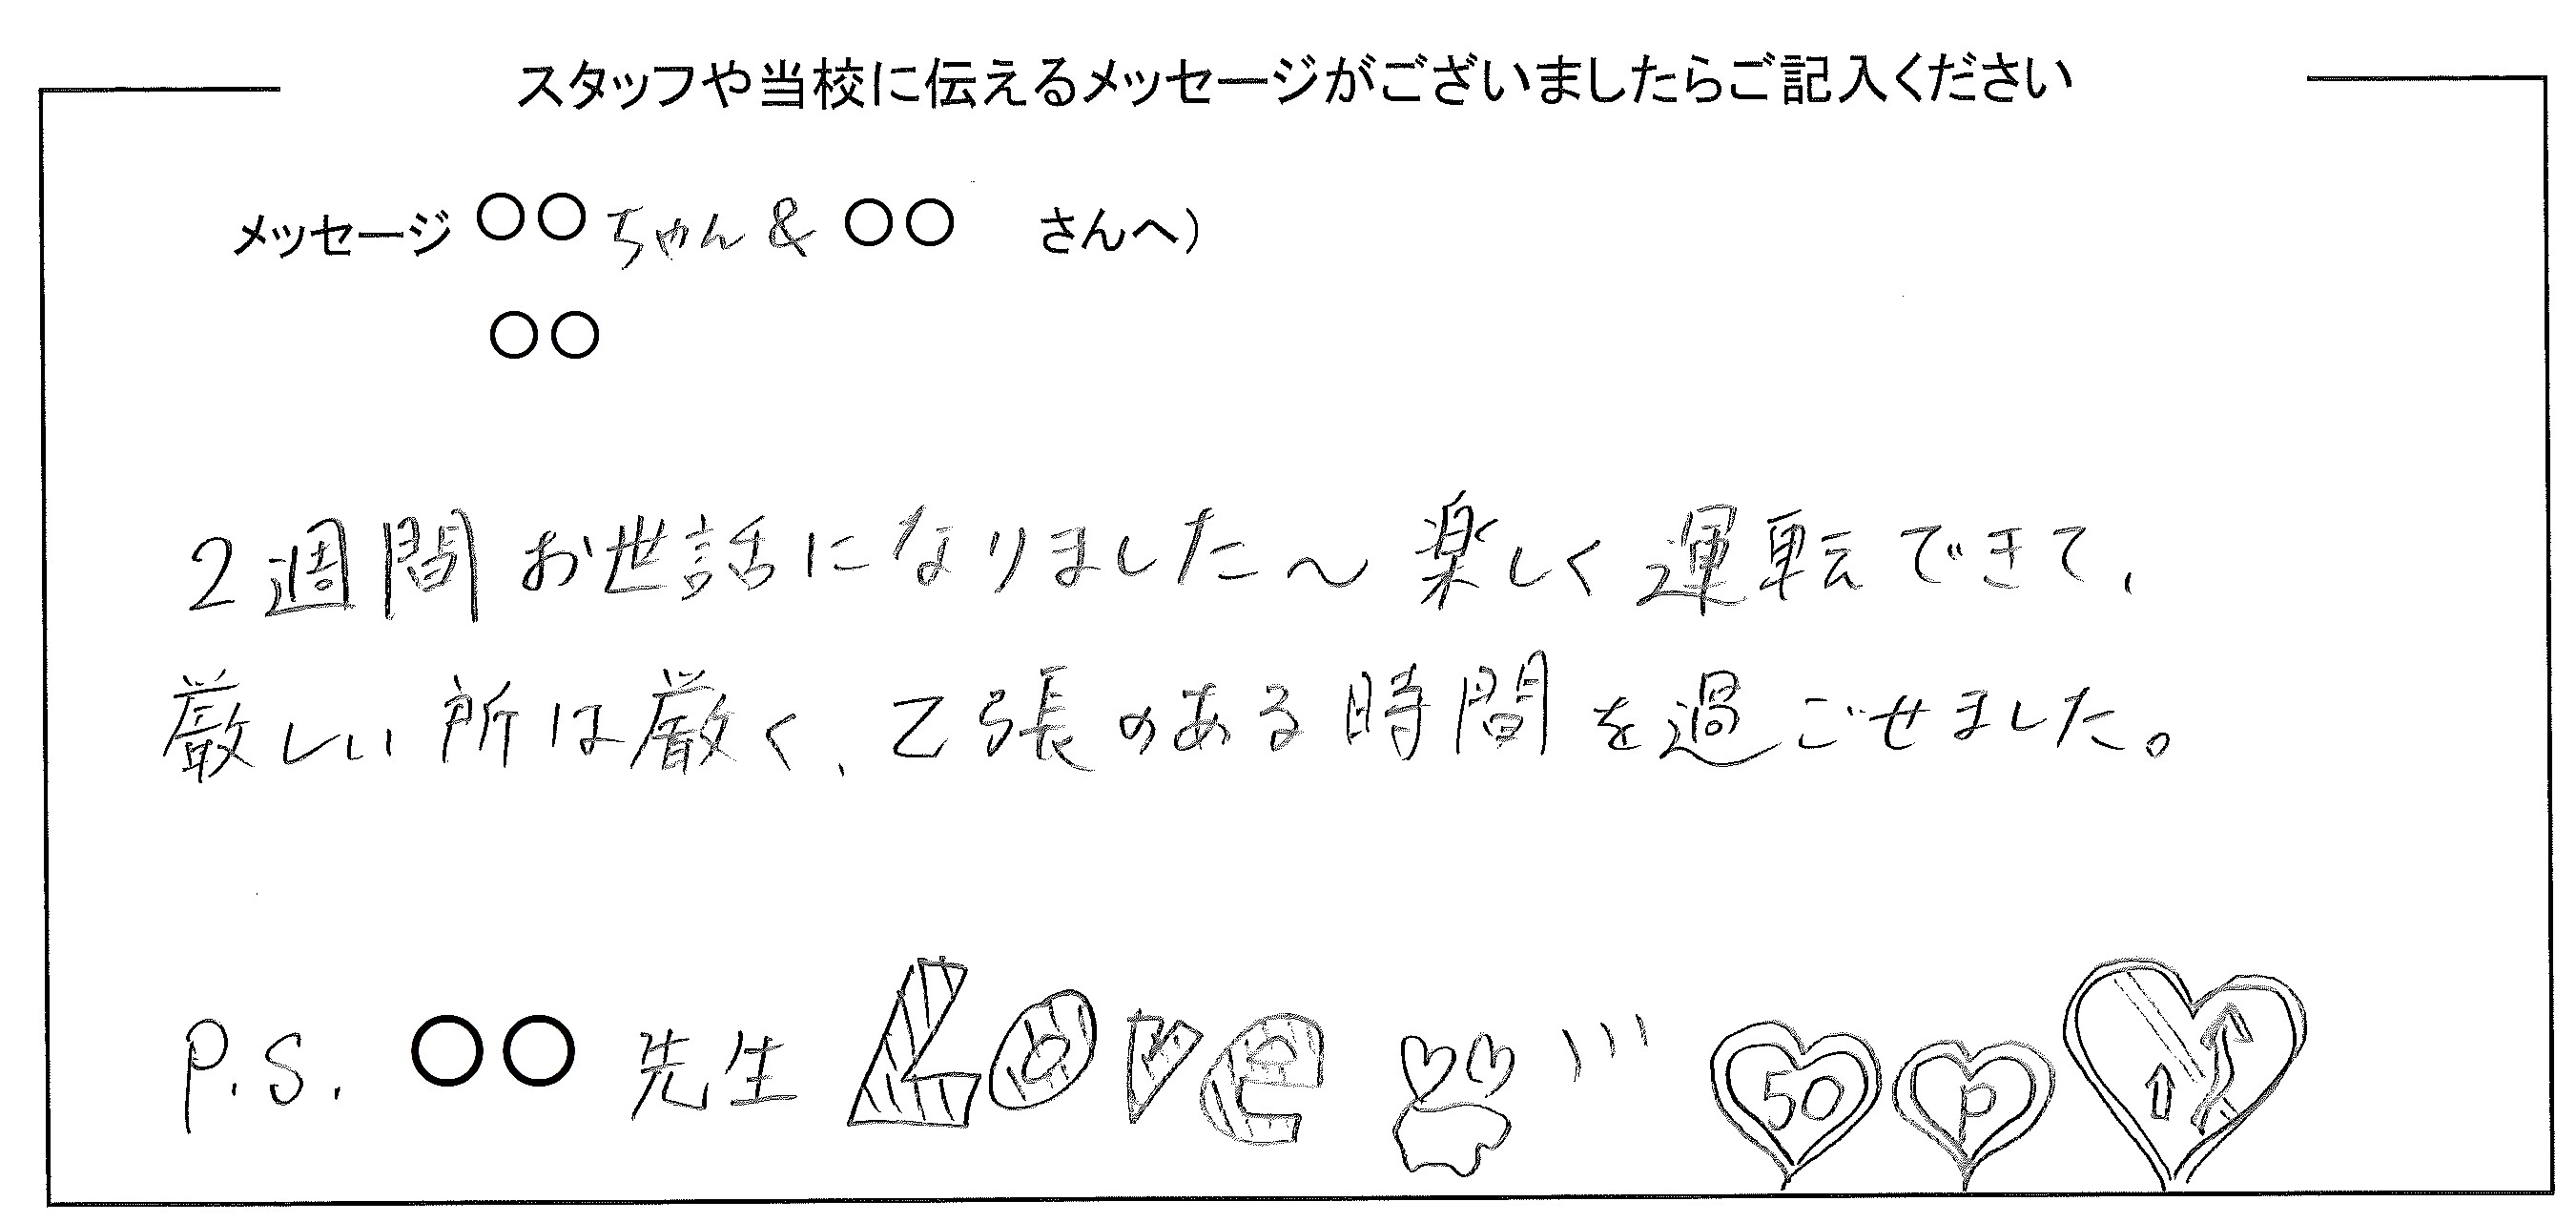 スタッフや当校に伝えるメッセージがございましたらご記入ください
メッセージ 〇〇ちゃん & 〇〇 さんへ)
〇〇
2週間お世話になりました〜楽しく運転できて、
厳しい所は厳く、乙張のある時間を過ごせました。
P.S. 〇〇 先生 Love
50 P